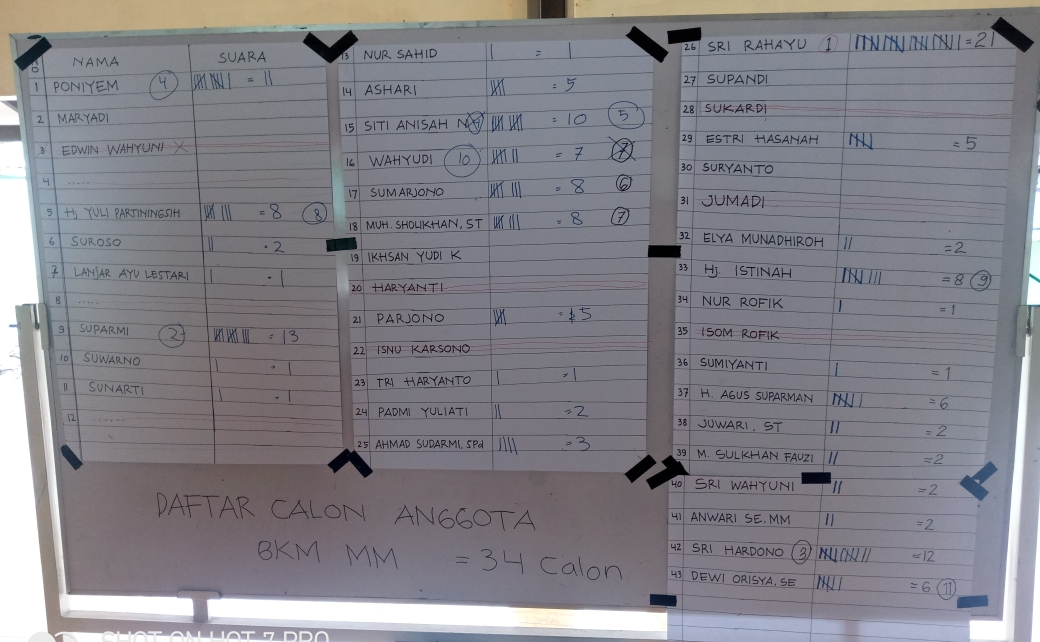 NO NAMA SUARA
1 PONIYEM 4 = 11
2 MARYADI
3 EDWIN WAHYUNI X
4 .....
5 Hj YULI PARTININGSIH = 8 8
6 SUROSO · 2
7 LANJAR AYU LESTARI · 1
8 .....
9 SUPARMI 2 = 13
10 SUWARNO · 1
11 SUNARTI · 1
12 ......
13 NUR SAHID = 1
14 ASHARI = 5
15 SITI ANISAH N = 10 5
16 WAHYUDI 10 = 7
17 SUMARJONO = 8 6
18 MUH. SHOLIKHAN, ST = 8 7
19 IKHSAN YUDI K
20 HARYANTI
21 PARJONO = 5
22 ISNU KARSONO
23 TRI HARYANTO =1
24 PADMI YULIATI =2
25 AHMAD SUDARMI, SPd =3
26 SRI RAHAYU 1 =21
27 SUPANDI
28 SUKARDI
29 ESTRI HASANAH =5
30 SURYANTO
31 JUMADI
32 ELYA MUNADHIROH =2
33 Hj. ISTINAH =8 9
34 NUR ROFIK =1
35 ISOM ROFIK
36 SUMIYANTI =1
37 H. AGUS SUPARMAN =6
38 JUWARI, ST =2
39 M. SULKHAN FAUZI =2
40 SRI WAHYUNI =2
41 ANWARI SE.MM =2
42 SRI HARDONO 3 =12
43 DEWI ORISYA, SE =6 11
DAFTAR CALON ANGGOTA
BKM MM = 34 Calon
SHOT ON HOT 7 PRO